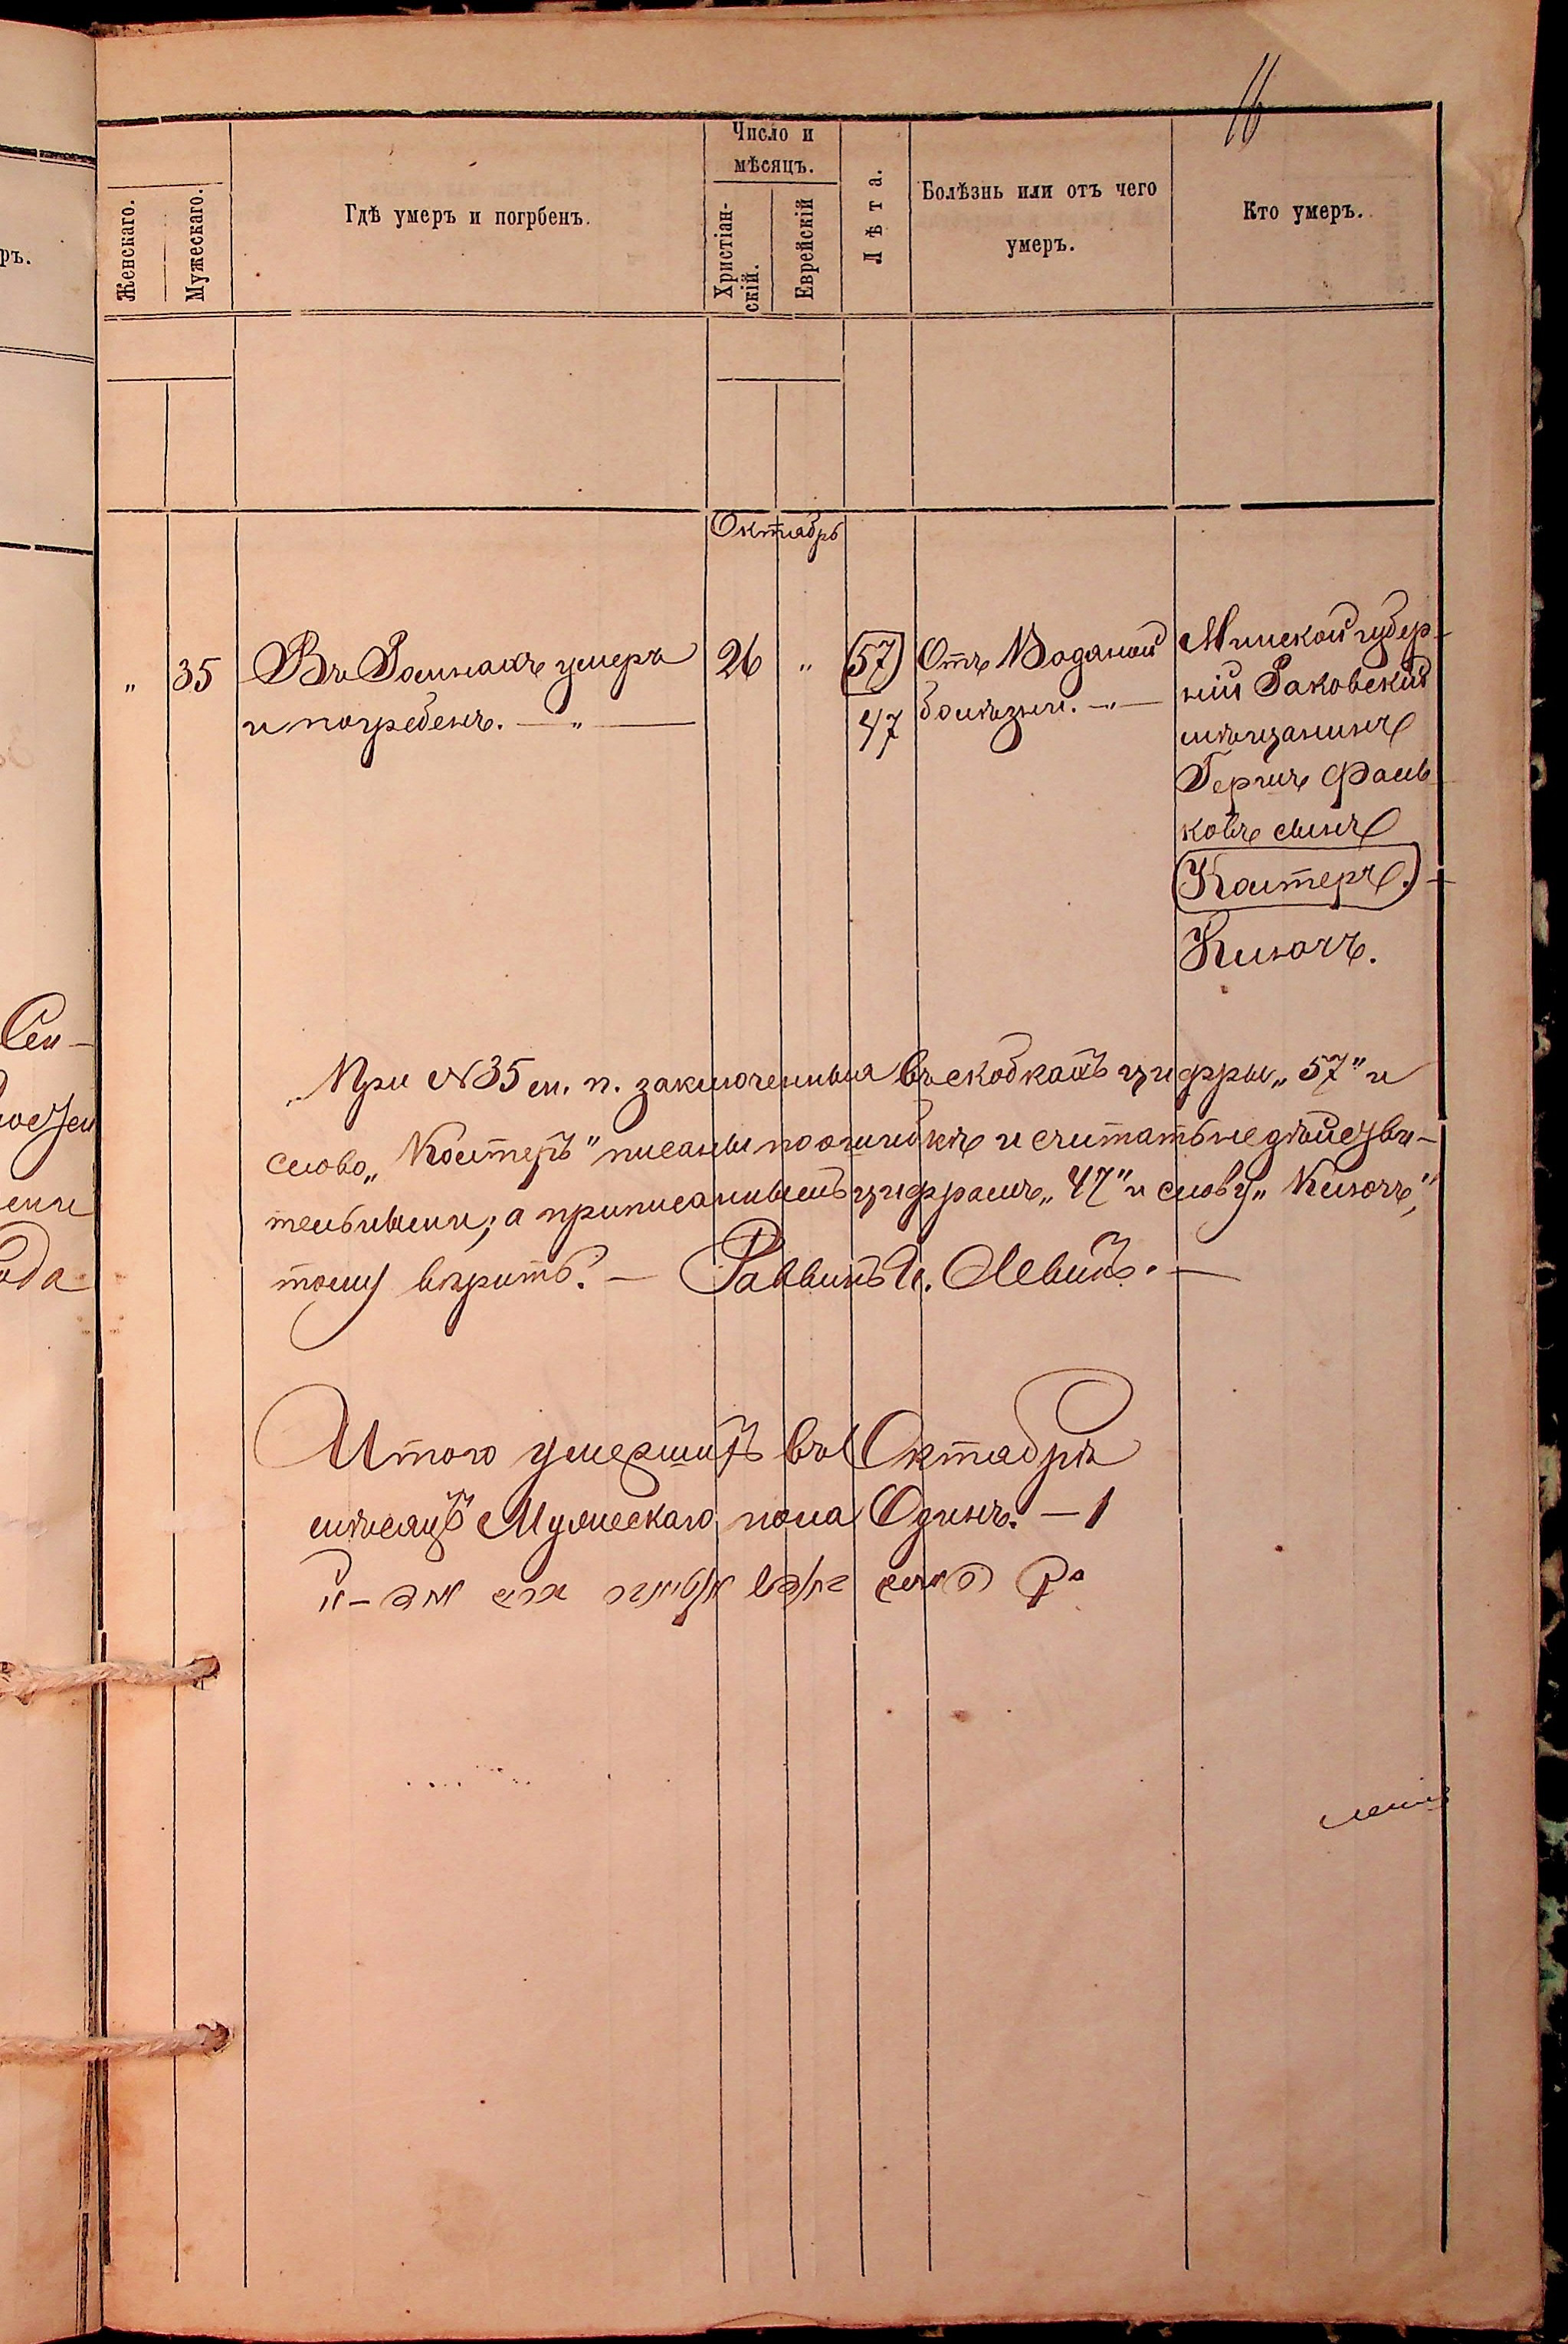 16
Женскаго.
Мужескаго.
Гдѣ умеръ и погрбенъ.
Число и
мѣсяцъ.
Христіан-
скій.
Еврейскій
Лѣта.
Болѣзнь или отъ чего
умеръ.
Кто умеръ.
Октябрь
" 35
Въ умеръ
и погребенъ. — " —
26 "
(57)
47
Отъ Водяной
болѣзни. — " —
Минской губер-
ніи Раковскій
мѣщанинъ
Фаль-
ковъ сынъ
(Костеръ.) —
При N 35 м. п. заключенныя въ скобкахъ цифры „57" и
слово „Костеръ" писаны по ошибкѣ и считать не дѣйстви-
тельными; а приписаннымъ цифрамъ „47" и слову
тому вѣрить. — Раввинъ И. Левинъ. —
Итого умершихъ въ Октябрѣ
мѣсяцѣ Мужескаго пола Одинъ. — 1
ръ.
Сен-
ода